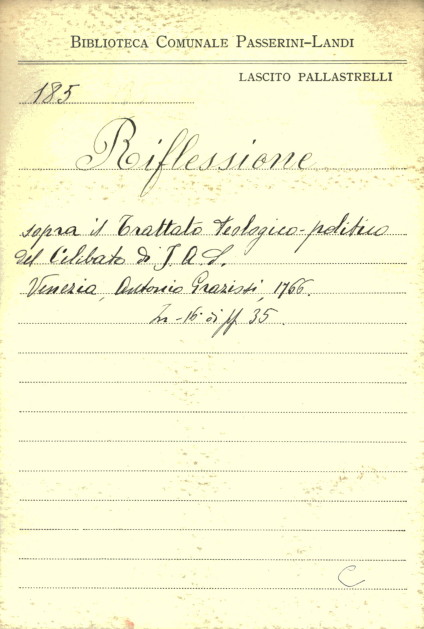 BIBLIOTECA COMUNALE PASSERINI-LANDI
LASCITO PALLASTRELLI
185
Riflessione
sopra il Trattato teologico-politico
del Cilibato di J. A. S.
Venezia, Antonio Grazissi, 1766.
In-16 di pp 35.
C